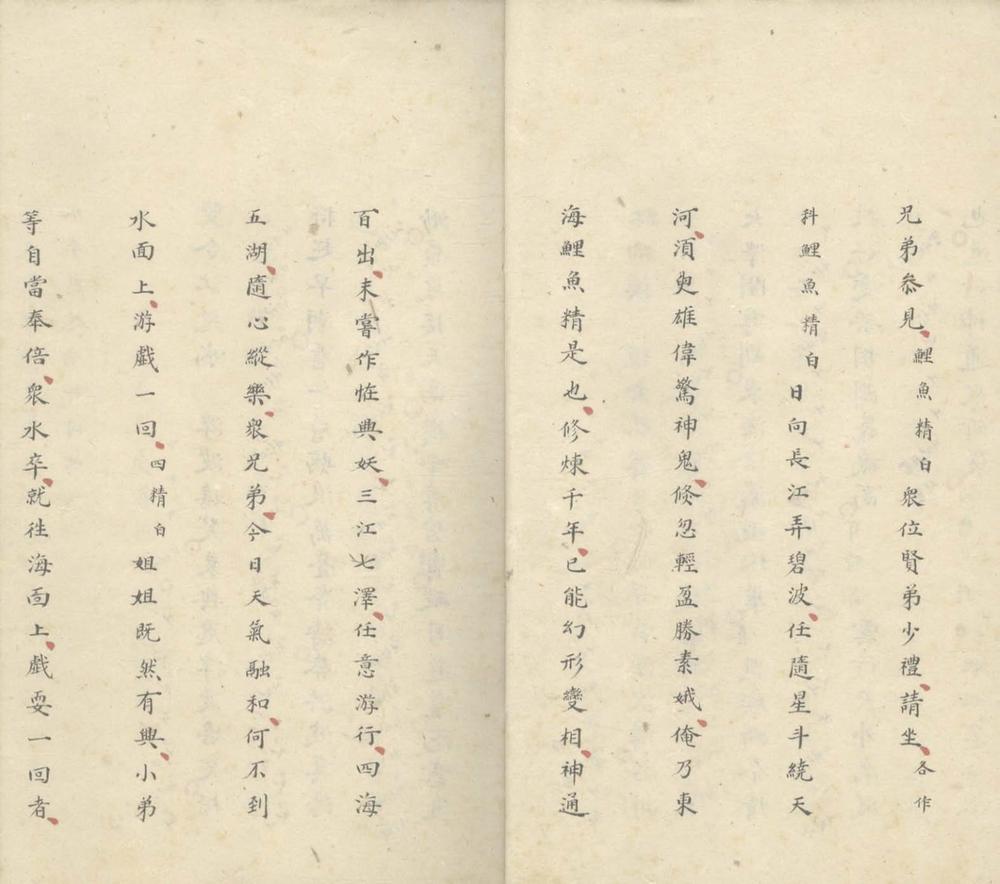 兄弟叅見、鯉魚精白衆位賢弟少禮、請坐、各作
科鯉魚精白日向長江弄碧波、任隨星斗繞天
河、湏臾雄偉驚神鬼、倐忽輕盈勝素娥、俺乃東
海鯉魚精是也、修煉千年、已能幻形變相、神通
百出、未嘗作恠興妖、三江七澤、任意游行、四海
五湖、隨心縱樂、衆兄弟、今日天氣融和、何不到
水面上、游戲一回、四精白姐姐既然有興、小弟
等自當奉倍、衆水卒、就徃海靣上、戲耍一回者、